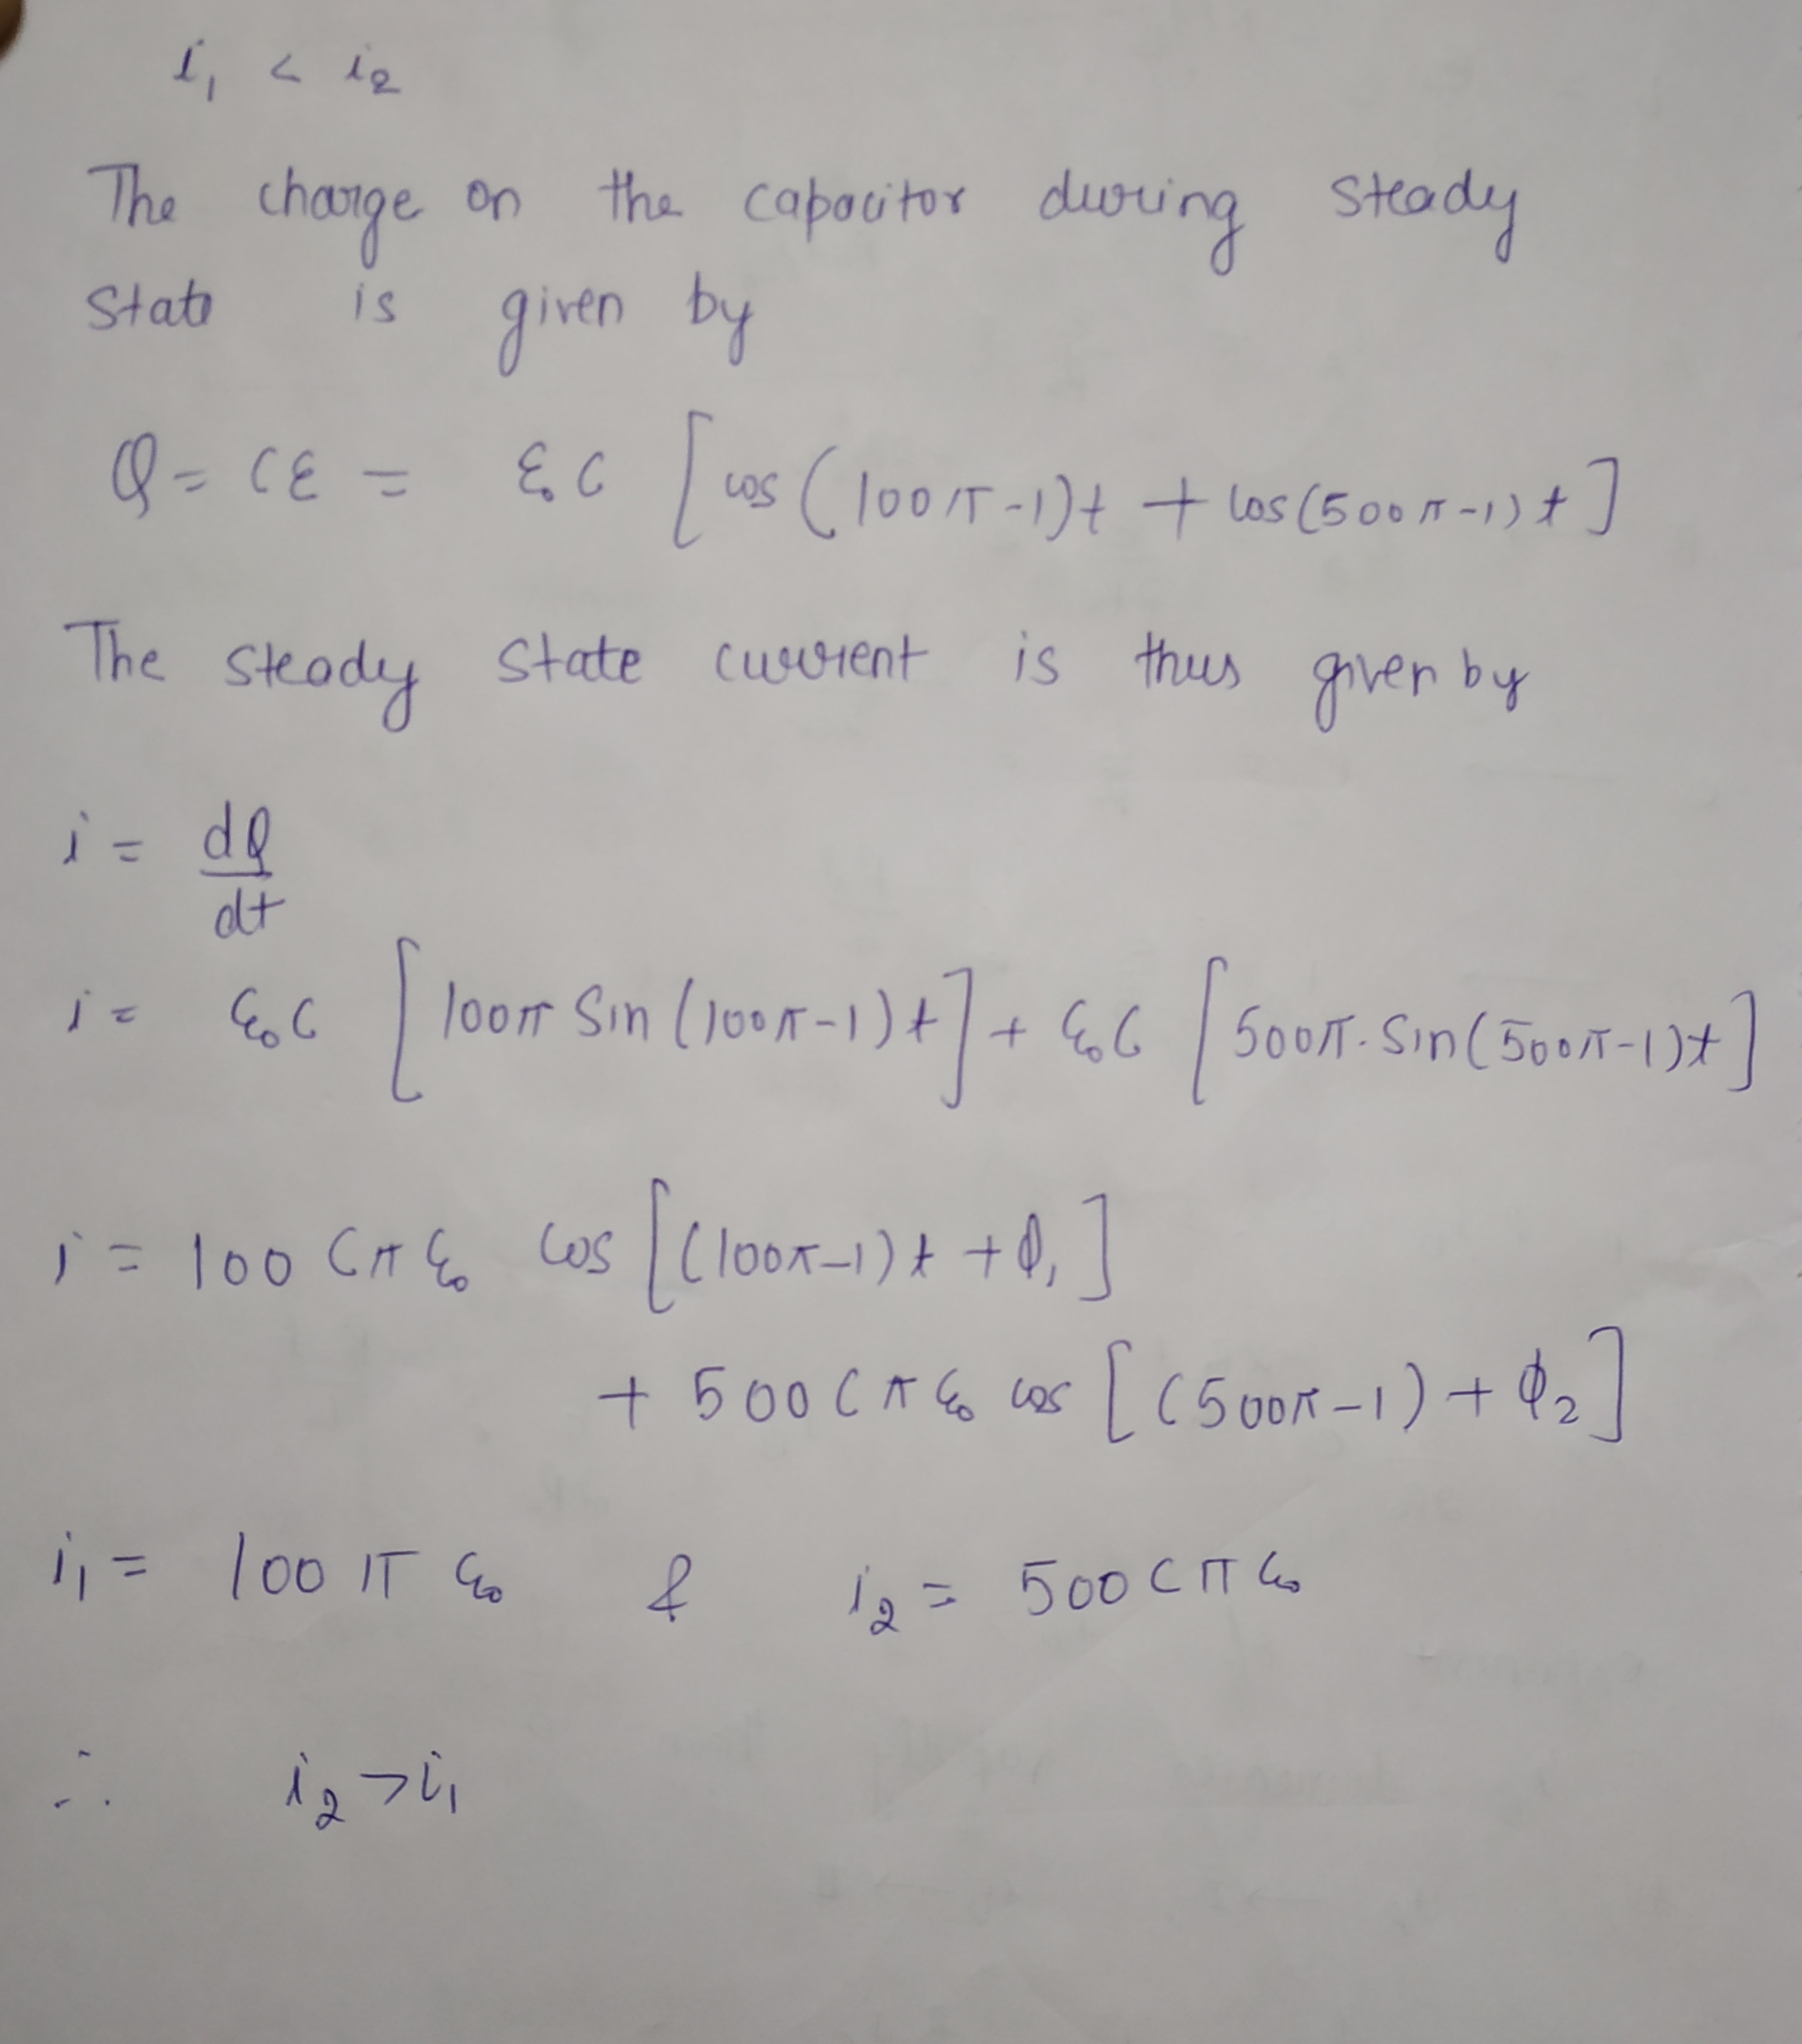 i₁ < i₂
The charge on the capacitor during steady
state is given by
Q = CE = ε₀C [cos(100π-1)t + cos(500π-1)t]
The steady state current is thus given by
i = dQ/dt
i = ε₀C [100π sin(100π-1)t] + ε₀C [500π. sin(500π-1)t]
i = 100 Cπε₀ cos[(100π-1)t + φ₁]
+ 500Cπε₀ cos[(500π-1) + φ₂]
i₁ = 100π ε₀ & i₂ = 500Cπε₀
∴ i₂ > i₁